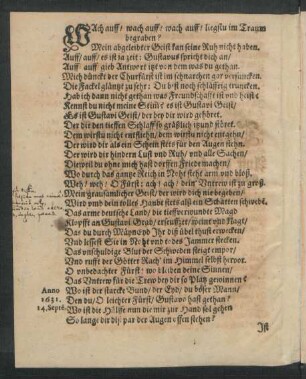 WAch auff/ wach auff/ wach auff/ liegstu im Traum
begraben?
Mein abgeleibter Geist kan seine Ruh nicht haben.
Auff/ auff/ es ist ja zeit: Gustavus spricht dich an/
Auff/ auff gieb Antwort ist von dem was du gethan.
Mich dünckt der Churfürst ist im schnarchen gar versuncken.
Die Fackel gläntzt zu sehr: Du bist noch schläfrig truncken.
Hab ich dann nicht gethan was Freundschafft ist und heist:
Kennst du nicht meine Stim? es ist Gustavi Geist/
Es ist Gustavi Geist/ der dey dir wird gehöret.
Der dir den tieffen Schlaff so gräßlich itzund störet.
Dem wirstu nicht entfliehn/ dem wirstu nicht entgehn/
Der wird dir als ein Schem stets für den Augen stehn.
Der wird dir hindern Lust und Ruh/ und alle Sachen/
Dieweil du ohne mich hast dörffen Friede machen/
Wo durch das gantze Reich in Noht steht arm und bloß.
Weh/ weh/ O Fürst: ach/ ach/ dein Untrew ist zu groß.
Mein grausamlicher Geist/ der wird dich nie begeben/
Wird und dein wildes Hauht stets als ein Schatten schwebē.
Das arme deutsche Land/ die tieffverwundte Magd
Klopfft an Gustavi Grab/ seuffzet/ weint und klagt/
Das du durch Mayn
Und lessest Sie in Noht und
Das unschuldige Blut der Schweden steigt empor/
Und rufft der Götter Rach im Himmel selbst hervor.
O unbedachter Fürst/ wo blieben deine Sinnen/
Das Untrew für die Trew bey dir so Platz gewinnen?
Wo ist der starcke Bund/ der Eyd/ du böser Mann/
Anno
1631.
14. Septē.
Den du/ O leichter Fürst/ Gustavo hast gethan?
Wo ist die Hülffe nun die mir zur Hand sol gehen
So lange dir die par der Augen offen stehen?
Ist